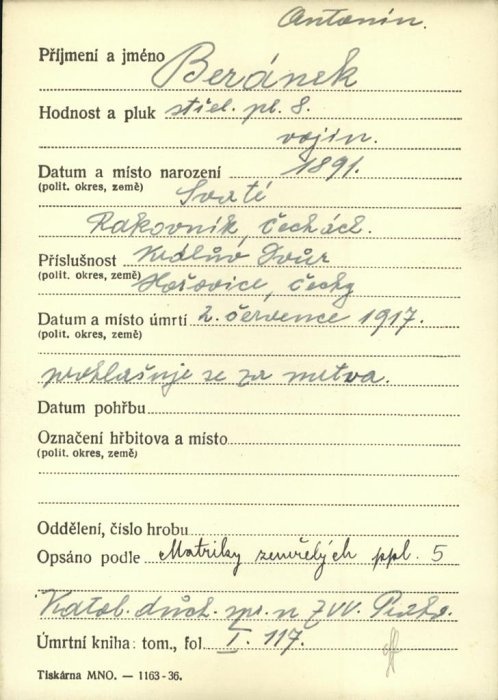 Antonín.
Příjmení a jméno Beránek
Hodnost a pluk střel. pl. 8.
vojín.
Datum a místo narození 1891.
(polit. okres, země) Svaté
Rakovník, Čechách.
Příslušnost Králův Dvůr
(polit. okres, země) Hořovice, Čechy
Datum a místo úmrtí 2. července 1917.
(polit. okres, země)
prohlašuje se za mrtva.
Datum pohřbu
Označení hřbitova a místo
(polit. okres, země)
Oddělení, číslo hrobu
Opsáno podle Matriky zemřelých ppl. 5
Katol. duch. spr. u ZVV. Praha.
Úmrtní kniha: tom., fol. I. 117.
Tiskárna MNO. — 1163-36.